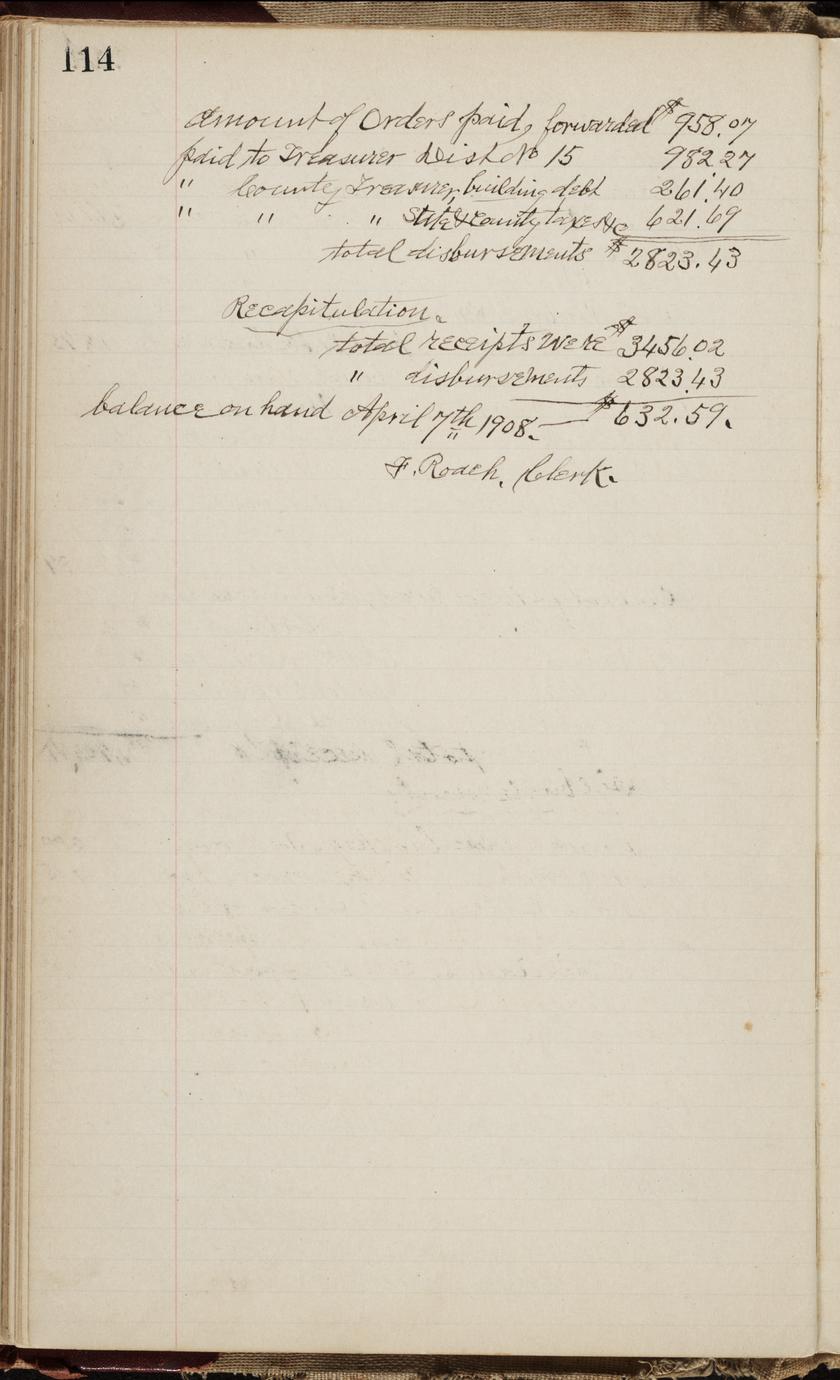 114
Amount of Orders paid, forwarded $ 958.07
paid to Treasurer Dist No 15 982.27
" County Treasurer, building debt 261.40
" " " State & County taxes &c 621.69
total disbursements $ 2823.43
Recapitulation.
total receipts were $ 3456.02
" disbursements 2823.43
balance on hand April 7th 1908. — $ 632.59.
F. Roach, Clerk.